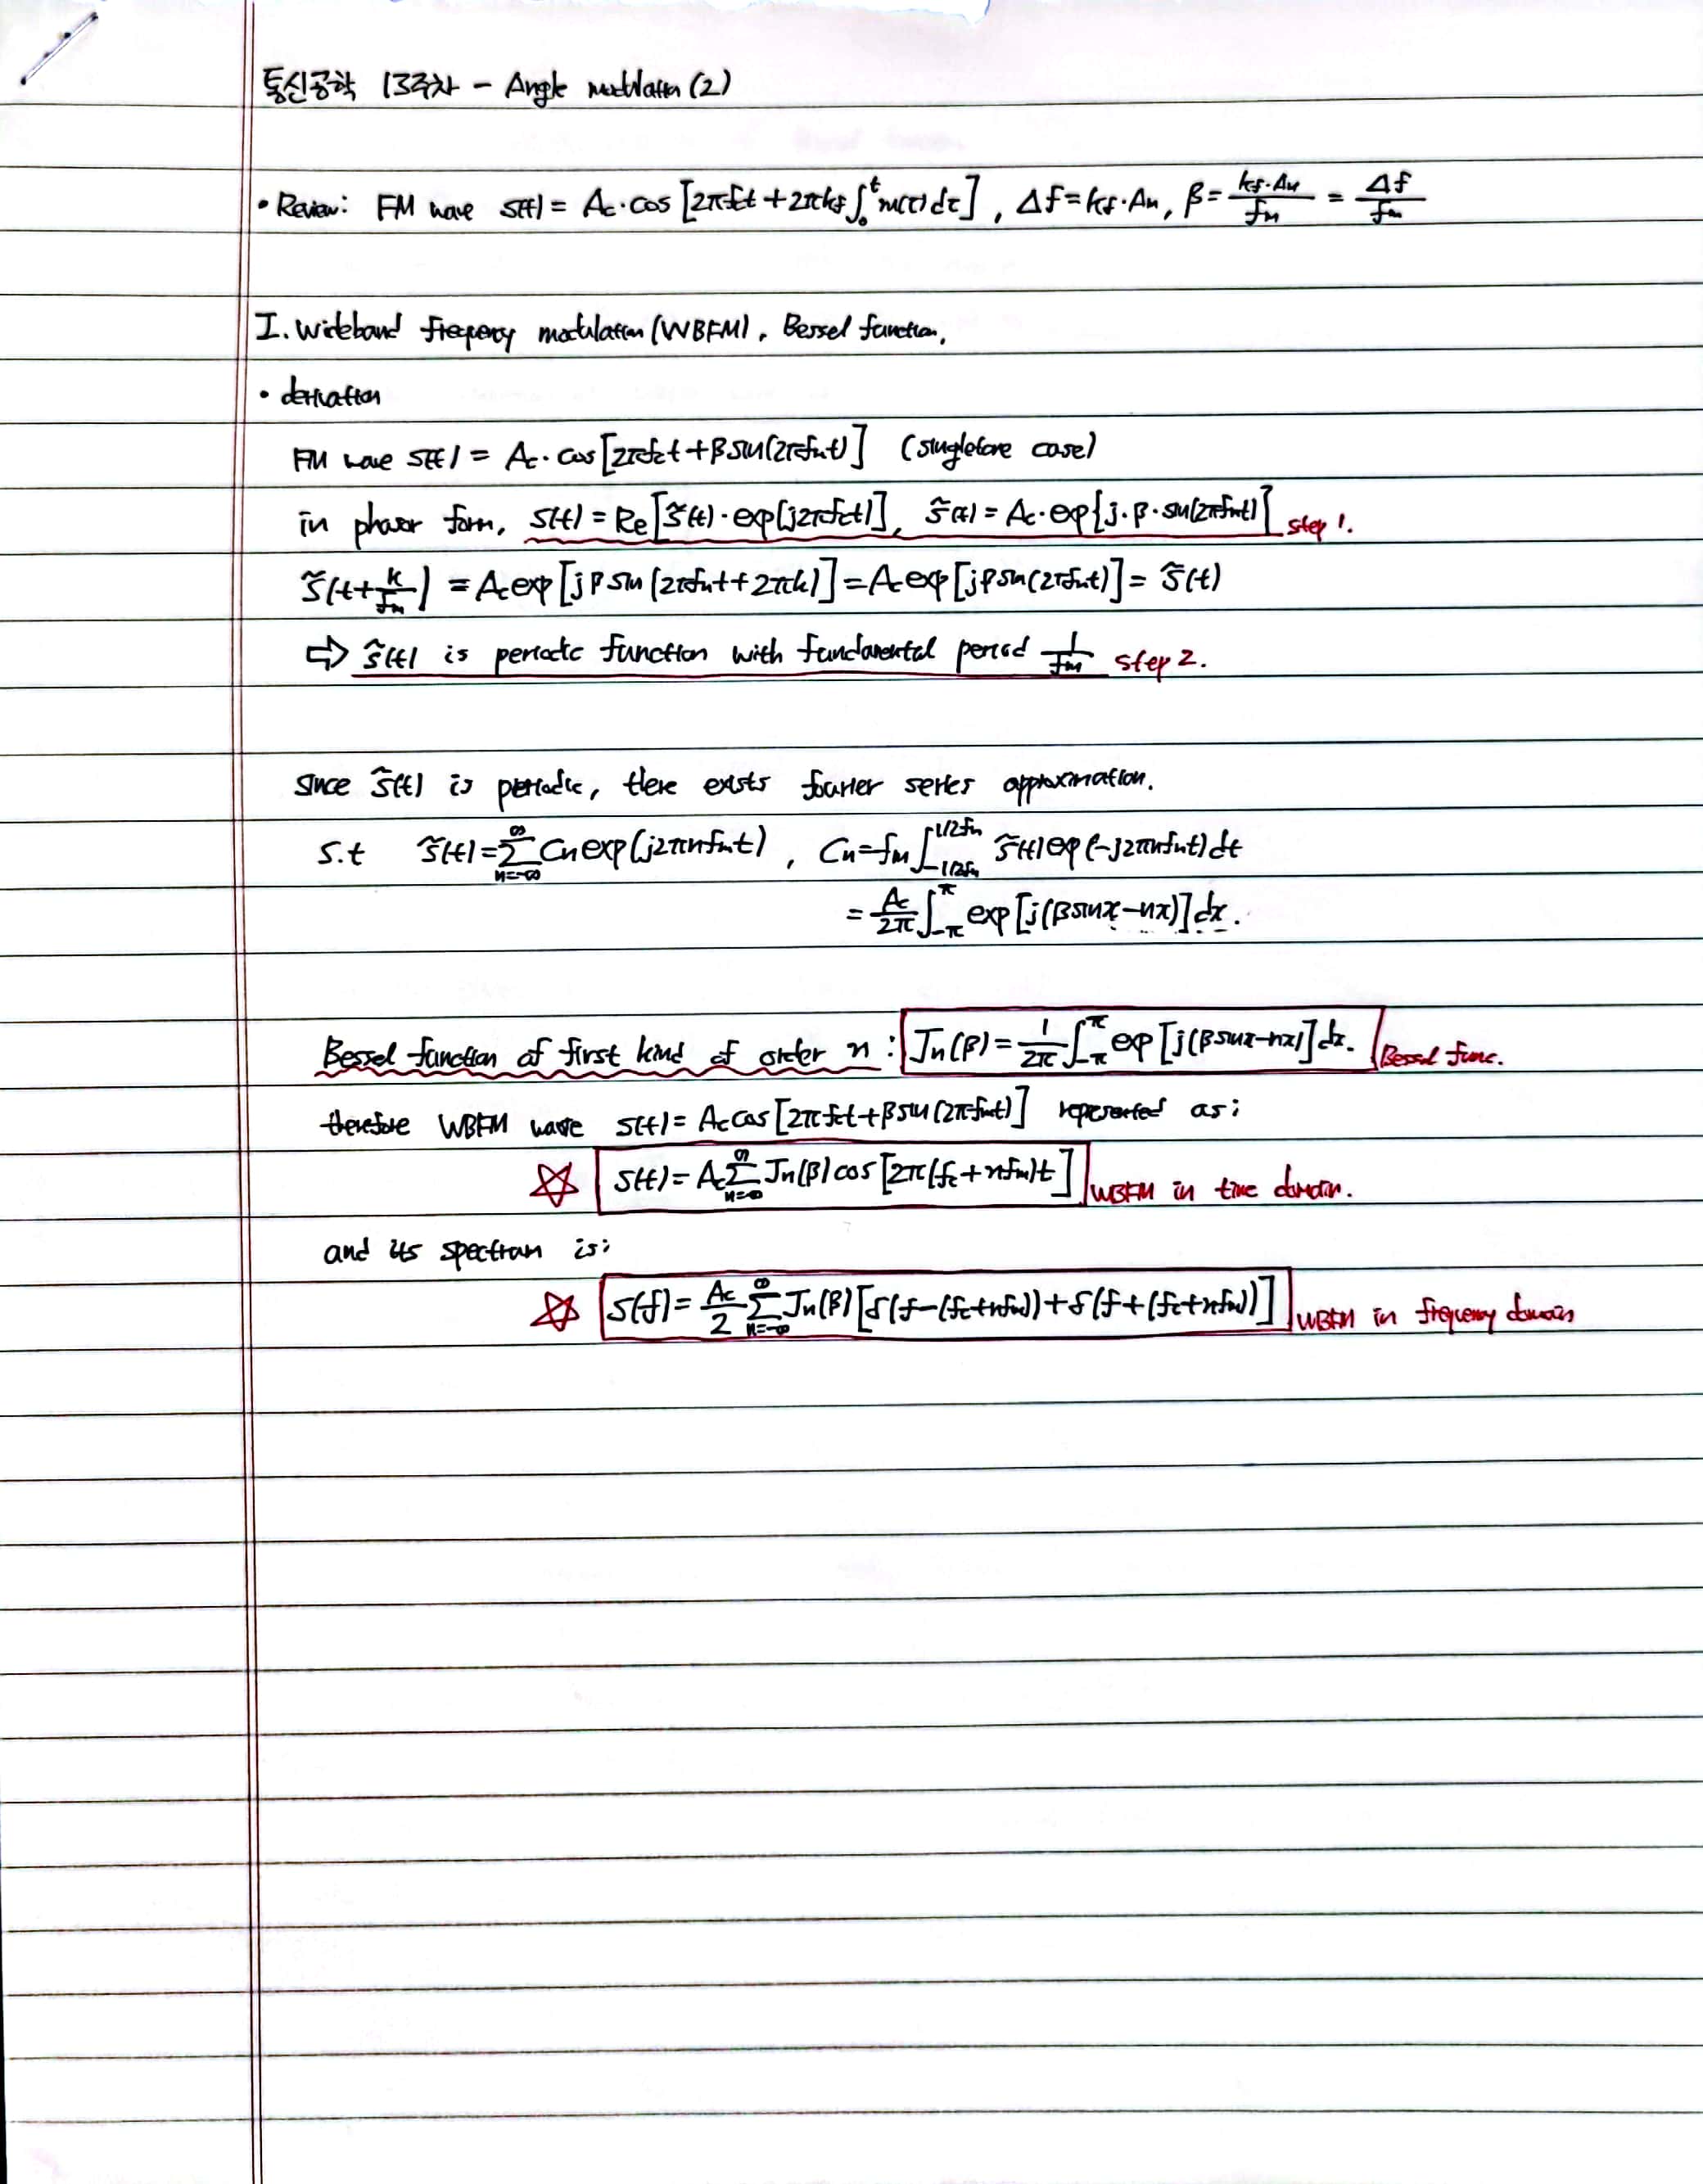 통신공학 13주차 - Angle modulation (2)
• Review: FM wave s(t) = Ac·cos[2πfct + 2πkf∫₀ᵗ m(τ)dτ], Δf = kf·Am, β = kf·Am/fm = Δf/fm
I. Wideband frequency modulation (WBFM), Bessel function,
• derivation
FM wave s(t) = Ac·cos[2πfct + βsin(2πfmt)] (singletone case)
in phasor form, s(t) = Re[s̃(t)·exp(j2πfct)], s̃(t) = Ac·exp{j·β·sin(2πfmt)} step 1.
s̃(t + k/fm) = Ac exp[jβ sin(2πfmt + 2πk)] = Ac exp[jβ sin(2πfmt)] = s̃(t)
⇨ s̃(t) is periodic function with fundamental period 1/fm step 2.
Since s̃(t) is periodic, there exists fourier series approximation.
s.t s̃(t) = ∑_{n=-∞}^{∞} Cn exp(j2πnfmt), Cn = fm∫_{-1/2fm}^{1/2fm} s̃(t) exp(-j2πnfmt)dt
= Ac/2π ∫_{-π}^{π} exp[j(βsinx - nx)]dx.
Bessel function of first kind of order n : Jn(β) = 1/2π ∫_{-π}^{π} exp[j(βsinx - nx)]dx. Bessel func.
therefore WBFM wave s(t) = Ac cos[2πfct + βsin(2πfmt)] represented as:
☆ s(t) = Ac ∑_{n=-∞}^{∞} Jn(β) cos[2π(fc + nfm)t] WBFM in time domain.
and its spectrum is:
☆ S(f) = Ac/2 ∑_{n=-∞}^{∞} Jn(β)[δ(f - (fc + nfm)) + δ(f + (fc + nfm))] WBFM in frequency domain